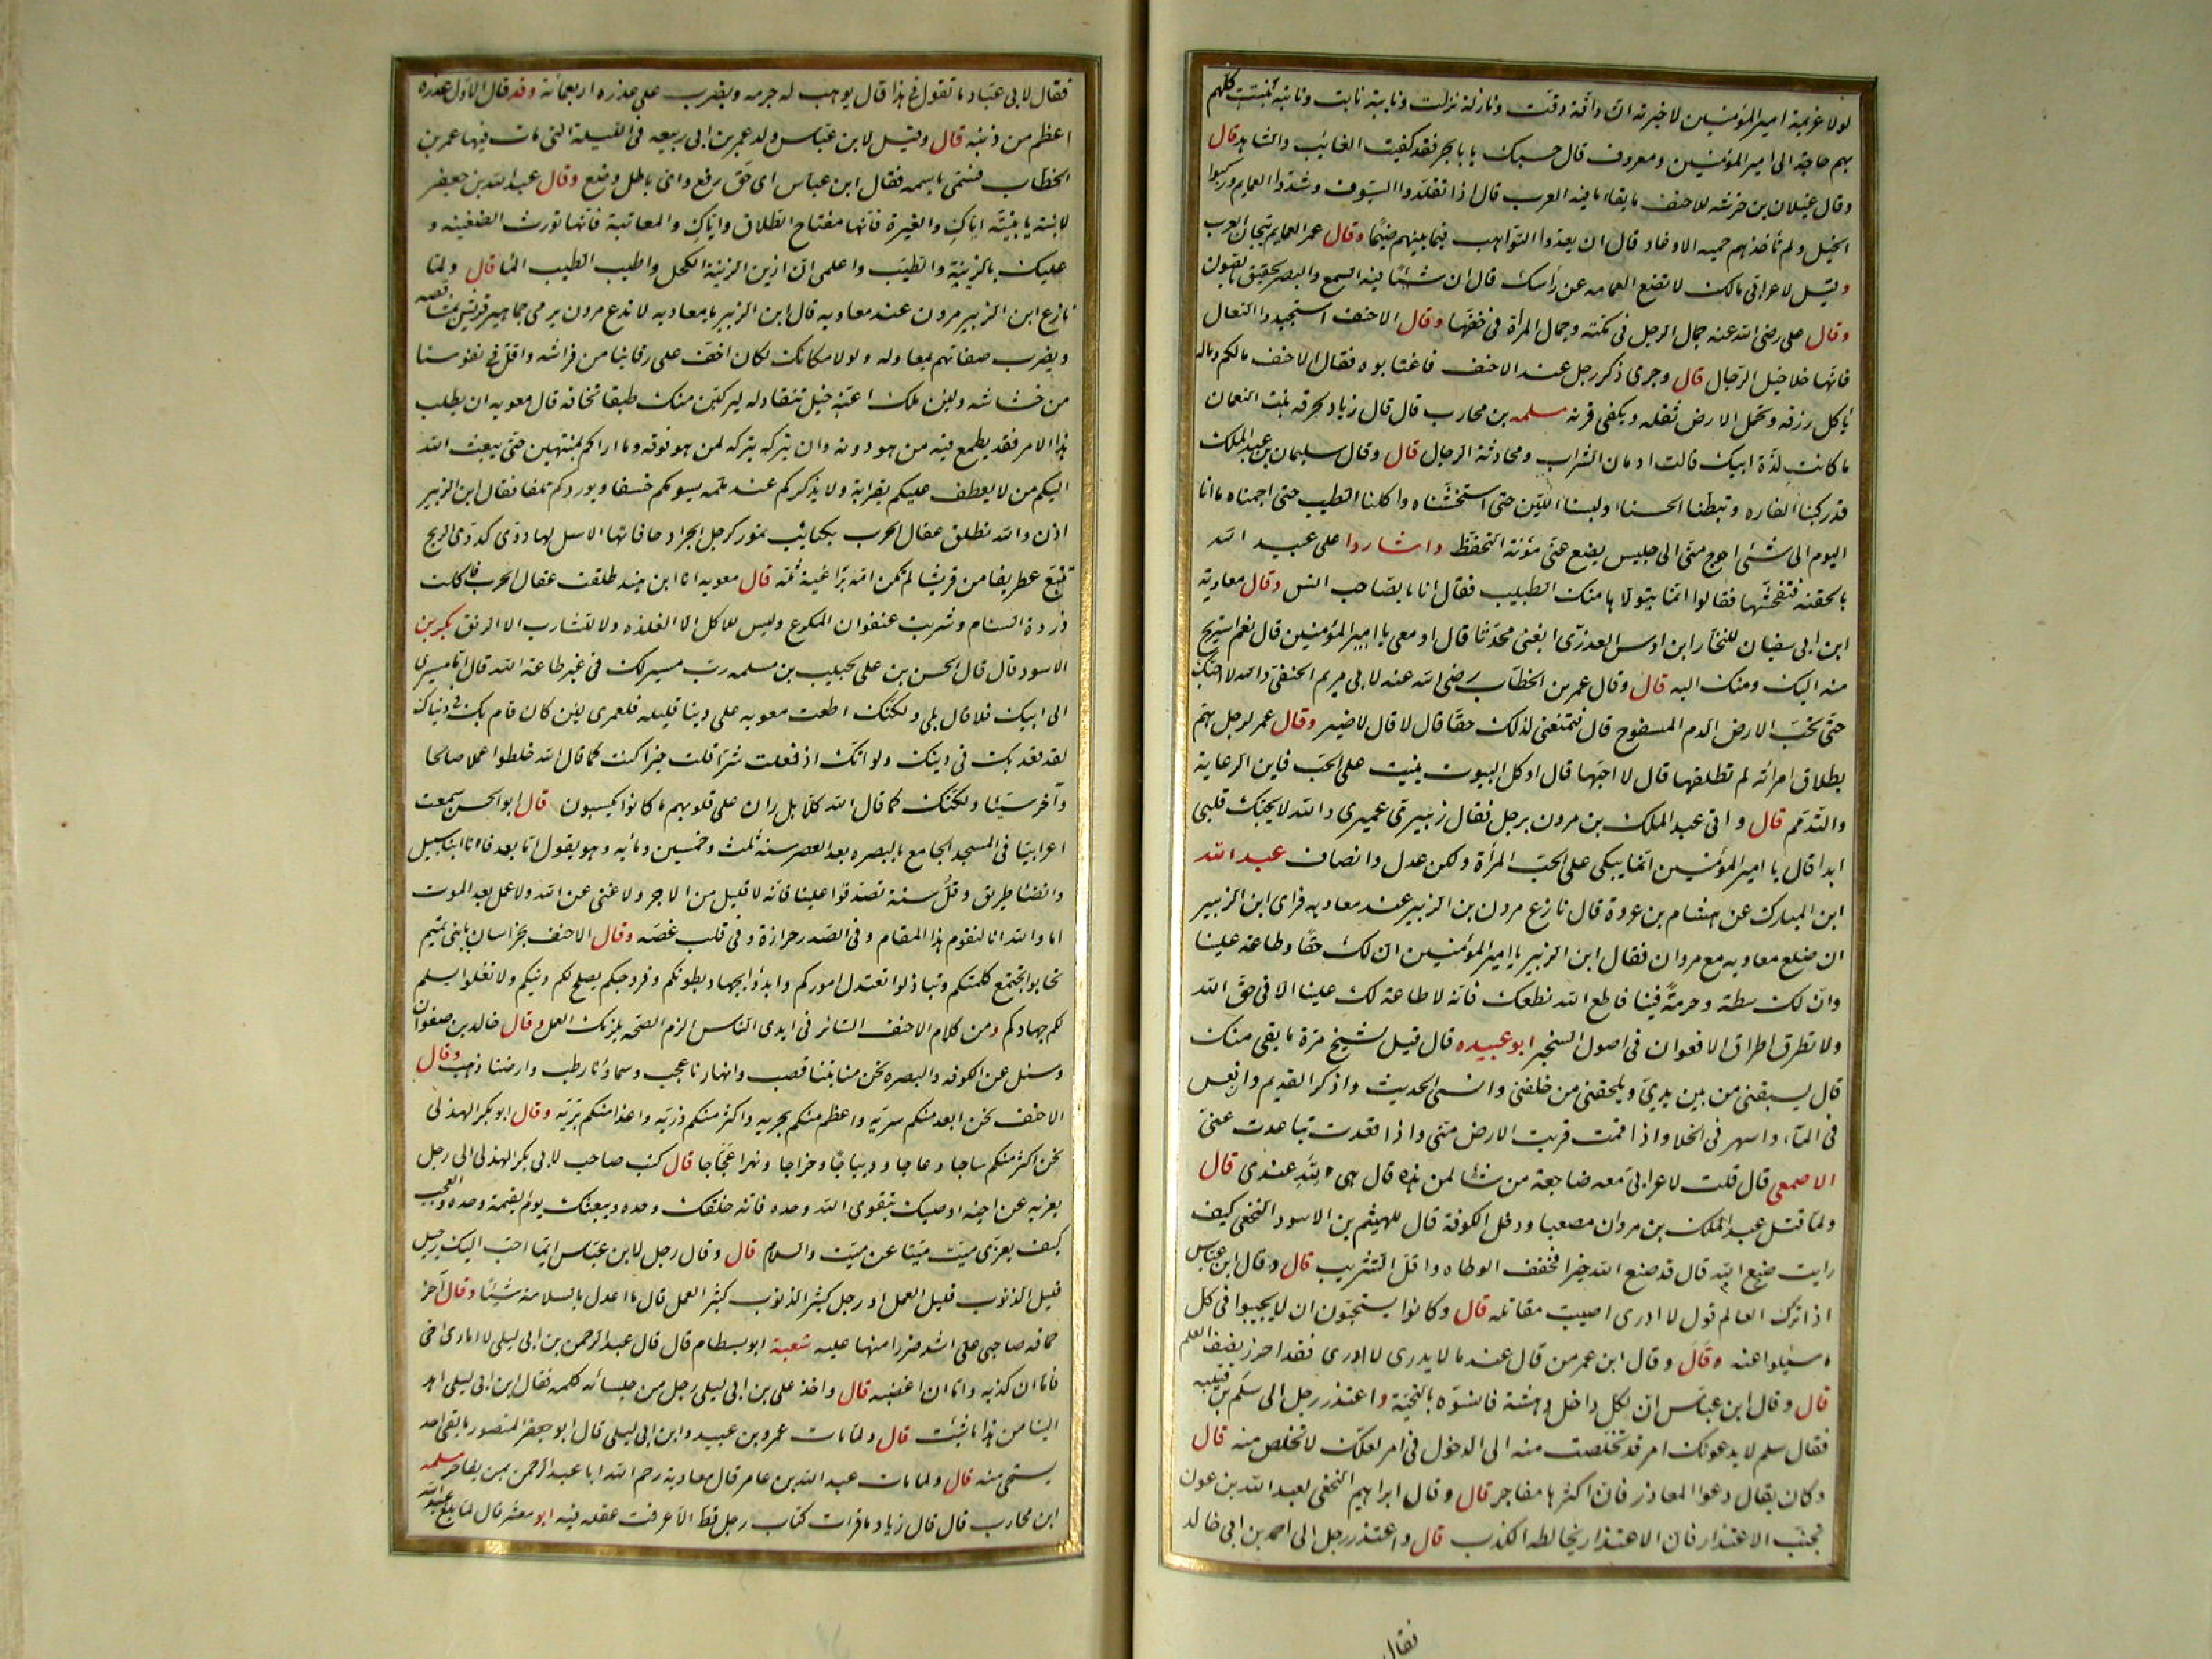 لولا عزيمة امير المؤمنين لاخبرته ان دافة دفت ونازلة نزلت ونايبة نابت ونابتة نبتت كلهم
بهم حاجة الى امير المؤمنين ومعروف قال حسبك يا ابا بحر فقد كفيت الغائب والشاهد قال
وقال غيلان بن خرشه للاحنف ما بقاء ما فيه العرب قال اذا تقلدوا السيوف وشدوا العمايم وركبوا
الخيل ولم تأخذهم حميه الاوغاد قال ان يعدوا التواهب فيما بينهم ضيما وقال عمر العمايم تيجان العرب
وقيل لاعرابى مالك لا تضع العمامه عن رأسك قال ان شيئا فيه السمع والبصر لحقيق بالصون
وقال على رضى الله عنه جمال الرجل فى كمته وجمال المرأة فى خفها وقال الاحنف استجيدوا النعال
فانها خلاخيل الرجال قال وجرى ذكر رجل عند الاحنف فاغتابوه فقال الاحنف مالكم وماله
يأكل رزقه وتحمل الارض ثقله ويكفى قرنه مسلمه بن محارب قال قال زياد لحرقه بنت النعمان
ما كانت لذة ابيك قالت ادمان الشراب ومحادثة الرجال قال وقال سليمان بن عبد الملك
قد ركبنا الفاره وتبطنا الحسناء ولبسنا اللين حتى استخشناه واكلنا الطيب حتى اجمناه ما انا
اليوم الى شئ احوج منى الى جليس يضع عنى مؤنة التحفظ واشاروا على عبيد الله
بالحقنه فتفحشها فقالوا انما يتولاها منك الطبيب فقال انا بالصاحب انس وقال معاوية
ابن ابى سفيان للنخار ابن اوس العذرى ابغنى محدثا قال او معى يا امير المؤمنين قال نعم استريح
منه اليك ومنك اليه قال وقال عمر بن الخطاب رضى الله عنه لابى مريم الحنفى والله لا احبك
حتى تحب الارض الدم المسفوح قال فتمنعنى لذلك حقا قال لا قال لا ضير وقال عمر لرجل هم
بطلاق امرأته لم تطلقها قال لا احبها قال او كل البيوت بنيت على الحب فاين الرعاية
والتذمم قال واتى عبد الملك بن مرون برجل فقال زبيرى عميرى والله لا يحبك قلبى
ابدا قال يا امير المؤمنين انما يبكى على الحب المرأة ولكن عدل وانصاف عبد الله
ابن المبارك عن هشام بن عروة قال نازع مرون بن الزبير عند معاويه فراى ابن الزبير
ان ضلع معاويه مع مروان فقال ابن الزبير يا امير المؤمنين ان لك حقا وطاعة علينا
وان لك سطة وحرمة فينا فاطع الله نطعك فانه لا طاعة لك علينا الا فى حق الله
ولا تطرق اطراق الافعوان فى اصول السخبر ابو عبيده قال قيل لشيخ مرة ما بقى منك
قال يسبقنى من بين يدى ويلحقنى من خلفى وانسى الحديث واذكر القديم وانعس
فى الملاء واسهر فى الخلا واذا قمت قربت الارض منى واذا قعدت تباعدت عنى
الاصمعى قال قلت لاعرابى معه ضاجعة من شاء لمن هذه قال هى لله عندى قال
ولما قتل عبد الملك بن مروان مصعبا ودخل الكوفة قال للهيثم بن الاسود النخعى كيف
رايت صنع الله قال قد صنع الله خيرا فخفف الوطاه واقل التثريب قال وقال ابن عباس
اذا ترك العالم قول لا ادرى اصيبت مقاتله قال وكانوا يستحبون ان لا يجيبوا فى كل
ما سئلوا عنه وقال وقال ابن عمر من قال عند ما لا يدرى لا ادرى فقد احرز نصف العلم
قال وقال ابن عباس ان لكل داخل دهشة فانسوه بالتحية واعتذر رجل الى سلم بن قتيبه
فقال سلم لا يدعونك امر قد تخلصت منه الى الدخول فى امر لعلك لا تخلص منه قال
وكان يقال دعوا المعاذر فان اكثرها مفاجر قال وقال ابراهيم النخعى لعبد الله بن عون
تجنب الاعتذار فان الاعتذار يخالطه الكذب قال واعتذر رجل الى احمد بن ابى خالد
فقال
فقال لابى عباد ما تقول فى هذا قال يوهب له جرمه ويضرب على عذره اربعمائة وقد قال الاول عذره
اعظم من ذنبه قال وقيل لابن عباس ولد عمر بن ابى ربيعه فى الليلة التى مات فيها عمر بن
الخطاب فسمى باسمه فقال ابن عباس اى حق رفع واى باطل وضع وقال عبد الله بن جعفر
لابنته يا بنية اياك والغيرة فانها مفتاح الطلاق واياك والمعاتبة فانها تورث الضغينه و
عليك بالزينة والطيب واعلمى ان ازين الزينة الكحل واطيب الطيب الماء قال ولما
نازع ابن الزبير مرون عند معاويه قال ابن الزبير يا معاويه لا تدع مرون يرمى جماهير قريش بمشاقصه
ويضرب صفاتهم بمعاوله ولولا مكانك لكان اخف على رقابنا من فراشه واقل فى نفوسنا
من خشاشه ولئن ملك اعنة خيل تنقاد له ليركبن منك طبقا تخافه قال معويه ان يطلب
هذا الامر فقد يطمع فيه من هو دونه وان يتركه يتركه لمن هو فوقه وما اراكم بمنتهين حتى يبعث الله
اليكم من لا يعطف عليكم بقرابة ولا يذكركم عند ملمه يسومكم خسفا ويوردكم تلفا فقال ابن الزبير
اذن والله نطلق عقال الحرب بكتائب تمور كرجل الجراد حافاتها الاسل لها دوى كدوى الريح
تتبع غطريفا من قريش لم تكن امه براعية ثلة قال معويه انا ابن هند طلقت عقال الحرب فاكلت
ذروة السنام وشربت عنفوان المكرع وليس للاكل الا الفلذه ولا للشارب الا الرنق بكر بن
الاسود قال قال الحسن بن على لحبيب بن مسلمه رب مسير لك فى غير طاعة الله قال اما مسيرى
الى ابيك فلا قال بلى ولكنك اطعت معويه على دينا قليله فلعمرى لئن كان قام بك فى دنياك
لقد قعد بك فى دينك ولو انك اذ فعلت شرا قلت خيرا كنت كما قال الله خلطوا عملا صالحا
وآخر سيئا ولكنك كما قال الله كلا بل ران على قلوبهم ما كانوا يكسبون قال ابو الحسن سمعت
اعرابيا فى المسجد الجامع بالبصره بعد العصر سنه ثلث وخمسين ومائه وهو يقول اما بعد فانا ابناء سبيل
وانضاء طريق وفل سنة تصدقوا علينا فانه لا قليل من الاجر ولا غنى عن الله ولا عمل بعد الموت
اما والله انا لنقوم هذا المقام وفى الصدر حزازة وفى قلب غصه وقال الاحنف بخراسان يا بنى تميم
تحابوا تجتمع كلمتكم وتباذلوا تعتدل اموركم وابدؤا بجهاد بطونكم وفروجكم يصلح لكم دينكم ولا تغلوا يسلم
لكم جهادكم ومن كلام الاحنف السائر فى ايدى الناس الزم الصحه يلزمك العمل وقال خالد بن صفوان
وسئل عن الكوفه والبصره نحن منابتنا قصب وانهارنا عجب وسماؤنا رطب وارضنا ذهب وقال
الاحنف نحن ابعد منكم سريه واعظم منكم بحريه واكثر منكم ذريه واعذا منكم بريه وقال ابو بكر الهذلى
نحن اكثر منكم ساجا وعاجا وديباجا وخراجا ونهرا عجاجا قال كتب صاحب لابى بكر الهذلى الى رجل
يعزيه عن اخيه اوصيك بتقوى الله وحده فانه خلقك وحده ويبعثك يوم القيمة وحده والعجب
كيف يعزى ميت ميتا عن ميت والسلام قال وقال رجل لابن عباس ايما احب اليك رجل
قليل الذنوب قليل العمل او رجل كثير الذنوب كثير العمل قال ما اعدل بالسلامة شيئا وقال آخر
حماقه صاحبى على اشد ضررا منها عليه شعبة ابو بسطام قال قال عبد الرحمن بن ابى ليلى لا امارى اخى
فاما ان كذبه واما ان اغضبه قال واخذ على بن ابى ليلى رجل من جلسائه كلمه فقال ابن ابى ليلى اهد
الينا من هذا ما شئت قال ولما مات عمرو بن عبيد وابن ابى ليلى قال ابو جعفر المنصور ما بقى احد
يستحى منه قال ولما مات عبد الله بن عامر قال معاوية رحم الله ابا عبد الرحمن بمن يفاخر مسلمه
ابن محارب قال قال زياد ما قرات كتاب رجل قط الا عرفت عقله فيه ابو معشر قال لما بلغ عبد الله